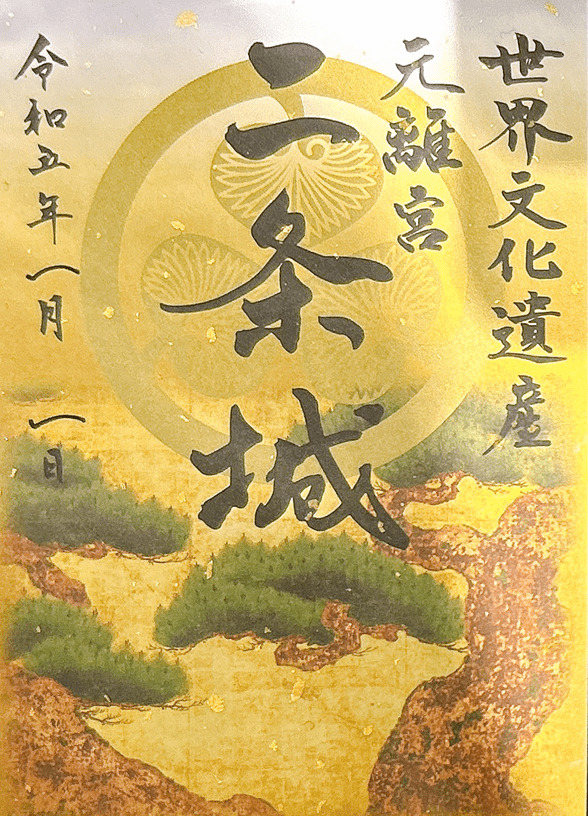 世界文化遺産
元離宮
二条城
令和五年一月 一日